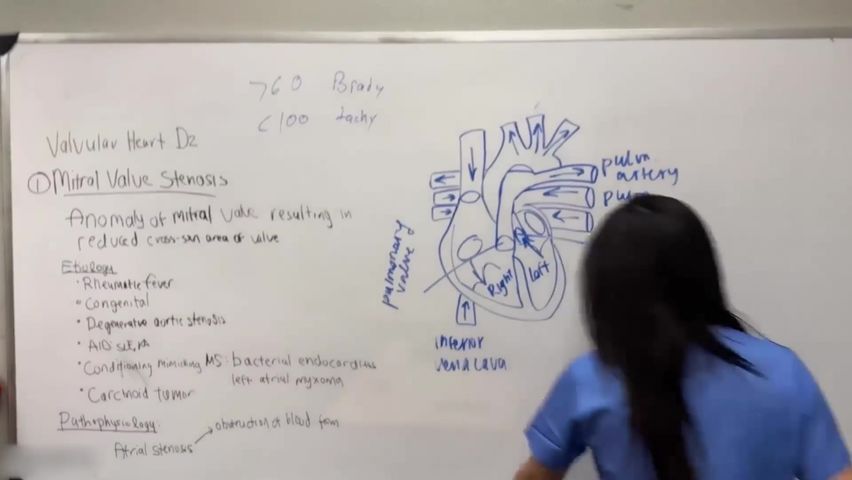 >60 Brady
<100 tachy
Valvular Heart Dz
① Mitral Valve Stenosis
Anomaly of mitral valve resulting in
reduced area of valve
Etiology
• Rheumatic fever
• Congenital
• Degenerative aortic stenosis
• AID SLE, RA
• Conditioning mimicking MS: bacterial endocarditis
left atrial myxoma
• Carcinoid tumor
Pathophysiology
Atrial stenosis
obstruction of blood
pulm.
artery
pulm
pulmonary
valve
Right
Left
inferior
vena cava